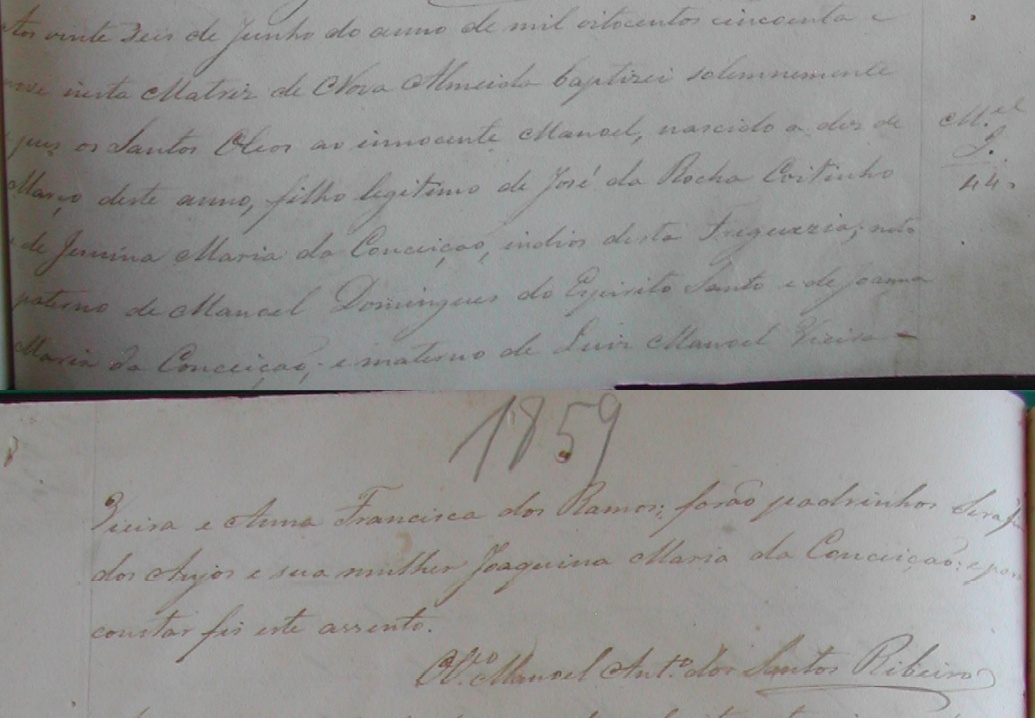 vinte Seis de Junho do anno de mil oitocentos cincoenta e
nesta Matriz de Nova Almeida baptizei solemnemente
os Santos Oleos ao innocente Manoel, nascido a dos de
Março deste anno, filho legitimo de José da Rocha Coitinho
e de Maria da Conceição, indios desta Freguezia; neto
paterno de Manoel Domingues do Espirito Santo e de Joanna
Maria da Conceição, e materno de Luiz Manoel Vieira -
M.el
I.
44.
1859
Vieira e Anna Francisca dos Ramos; forão padrinhos
dos Anjos e sua mulher Joaquina Maria da Conceição: e
constar fis este assento.
O V.o Manoel Ant.o dos Santos Ribeiro